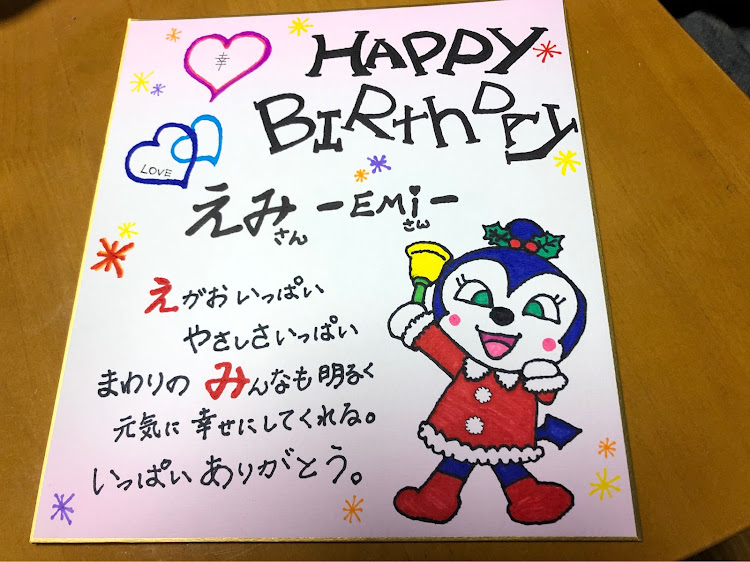 幸
HAPPY
BIRthDAY
LOVE
えみさん -EMiさん-
えがおいっぱい
やさしさいっぱい
まわりの みんなも明るく
元気に 幸せにしてくれる。
いっぱい ありがとう。